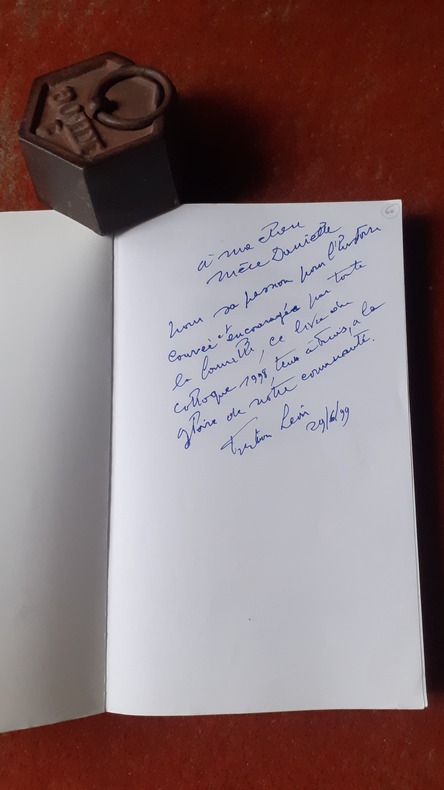 à ma chère
mère Danielle
Pour sa passion pour l'histoire
et encouragée par toute
la famille, ce livre du
colloque 1998, tenu à Tunis, a la
gloire de notre communauté.
29/6/99